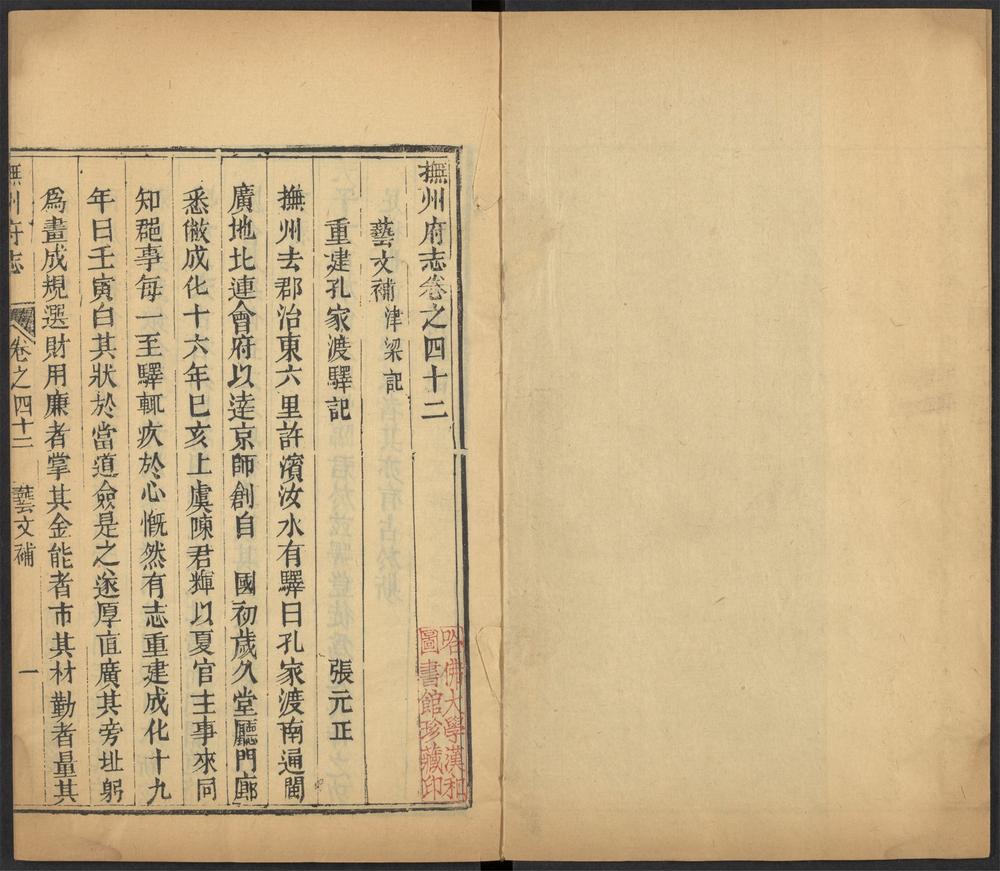 撫州府志卷之四十二
藝文補 津梁記
重建孔家渡驛記 張元正
撫州去郡治東六里許濱汝水有驛曰孔家渡南通閩
廣地北連會府以達京師創自 國初歲久堂廳門廊
悉敝成化十六年巳亥上虞陳君輝以夏官主事來同
知郡事每一至驛輒疚於心慨然有志重建成化十九
年日壬寅白其狀於當道僉是之遂厚直廣其旁址躬
爲畫成規選財用廉者掌其金能者市其材勤者量其
撫州府志 卷之四十二 藝文補 一
哈佛大學漢和
圖書館珍藏印